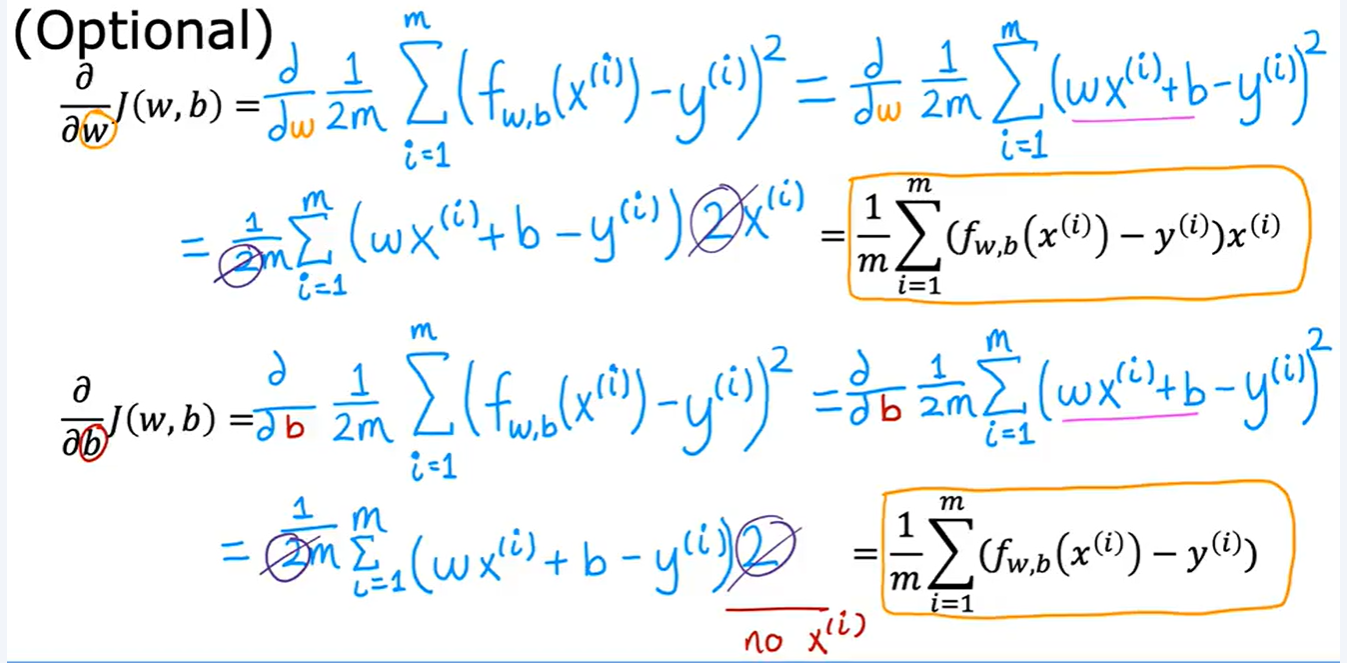 (Optional)
∂/∂w J(w, b) = d/dw 1/2m ∑_{i=1}^{m} (f_{w,b}(x^{(i)}) - y^{(i)})² = d/dw 1/2m ∑_{i=1}^{m} (wx^{(i)} + b - y^{(i)})²
= 1/2m ∑_{i=1}^{m} (wx^{(i)} + b - y^{(i)}) 2x^{(i)} = 1/m ∑_{i=1}^{m} (f_{w,b}(x^{(i)}) − y^{(i)})x^{(i)}
∂/∂b J(w, b) = ∂/∂b 1/2m ∑_{i=1}^{m} (f_{w,b}(x^{(i)}) - y^{(i)})² = ∂/∂b 1/2m ∑_{i=1}^{m} (wx^{(i)} + b - y^{(i)})²
= 1/2m ∑_{i=1}^{m} (wx^{(i)} + b - y^{(i)}) 2 = 1/m ∑_{i=1}^{m} (f_{w,b}(x^{(i)}) − y^{(i)})
no x^{(i)}